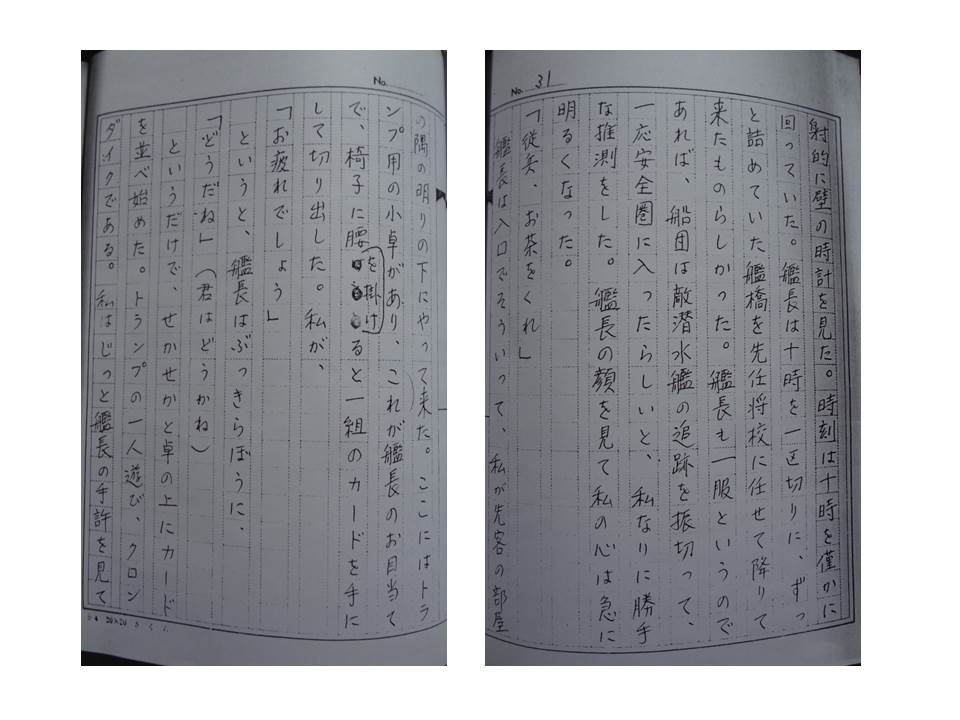 No. 31
射的に壁の時計を見た。時刻は十時を僅かに
回っていた。艦長は十時を一区切りに、ずっ
と詰めていた艦橋を先任将校に任せて降りて
来たものらしかった。艦長も一服というので
あれば、船団は敵潜水艦の追跡を振切って、
一応安全圏に入ったらしいと、私なりに勝手
な推測をした。艦長の顔を見て私の心は急に
明るくなった。
「従兵、お茶をくれ」
艦長は入口でそういって、私が先客の部屋
No.
の隅の明りの下にやって来た。ここにはトラ
ンプ用の小卓があり、これが艦長のお目当て
で、椅子に腰を掛けると一組のカードを手に
して切り出した。私が、
「お疲れでしょう」
というと、艦長はぶっきらぼうに、
「どうだね」(君はどうかね)
というだけで、せかせかと卓の上にカード
を並べ始めた。トランプの一人遊び、クロン
ダイクである。私はじっと艦長の手許を見て
20×20